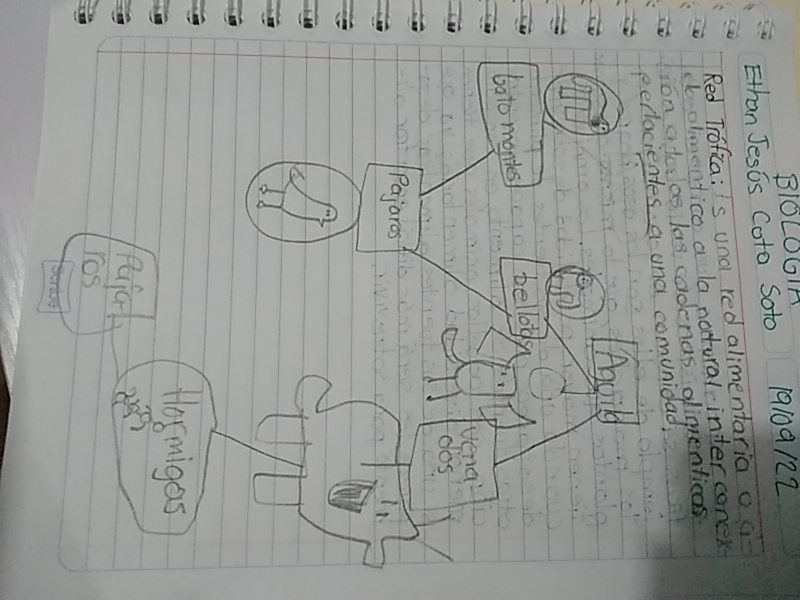 BIOLOGIA
Ethan Jesús Coto Soto 19/09/22
Red Trófica: Is una red alimentaria o ci=
clo alimentico a la natural interconex
ión a todas las cadenas alimenticas
pertacientes a una comunidad
Aguila
bato montes
bellotas
Vena
dos
Pajaros
Hormigas
Pája
ros